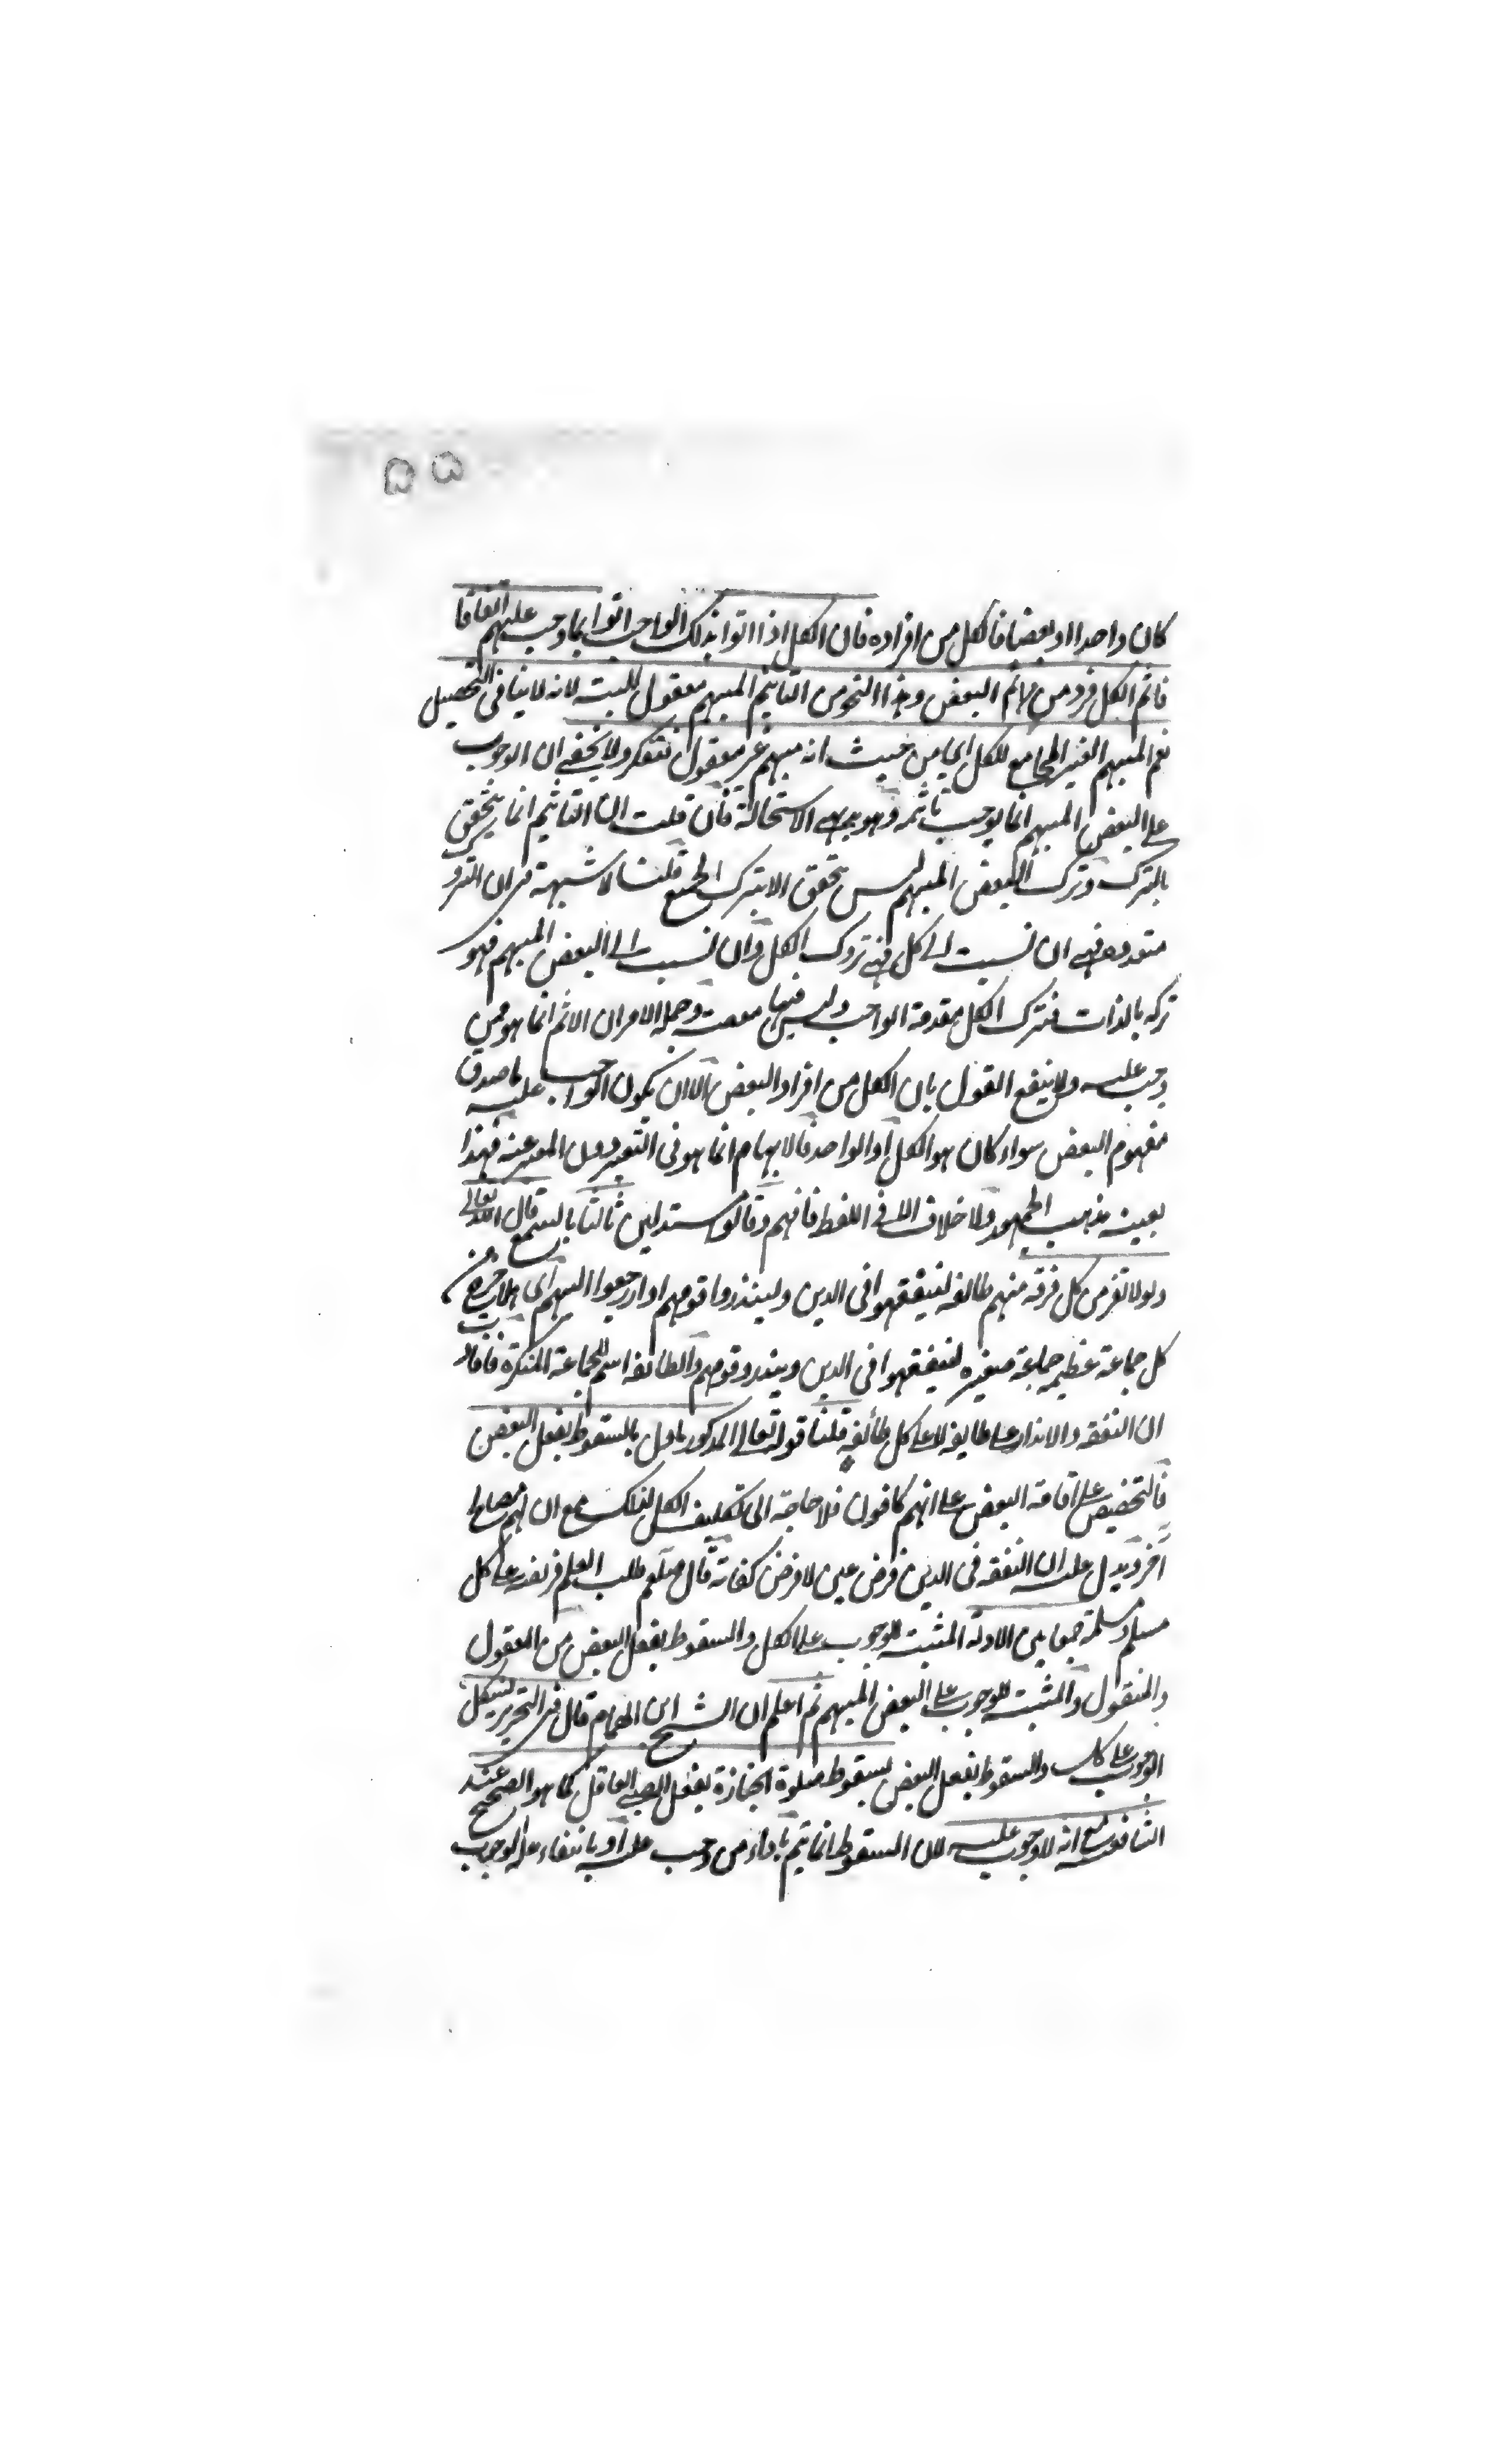 ٥٥
كان واحدا او بعضا فالكل من افراده فان الكل اذا اتوا بذلك الواجب اتوا بما وجب عليهم اتفاقا
فاثم الكل فرد من اثم البعض وهذا النحو من التاثيم المبهم معقول البتة لانه لا ينافى التحصيل
نعم المبهم الغير المجامع للكل اي من حيث انه مبهم غير معقول فتفكر ولا يخفى ان الوجوب
على البعض المبهم انما يوجب تاثمه وهو بديهي الاستحالة فان قلت ان التاثيم انما يتحقق
بالترك وترك البعض المبهم ليس يتحقق الا بترك الجميع قلنا لا شبهة فى ان التروك
متعددة فهي ان نسبت الى كل فهي تروك الكل وان نسب الى البعض المبهم فهو
تركه بالذات فترك الكل مقدمة الواجب وليس فيها معصية وجملة الامر ان الاثم انما هو ممن
وجب عليه ولا ينفع القول بان الكل من افراد البعض الا ان يكون الواجب عليه ما صدق
مفهوم البعض سواء كان هو الكل او الواحد فالابهام انما هو فى التعبير دون المعبر عنه فهذا
بعينه مذهب الجمهور ولا خلاف الا فى اللفظ فافهم وقالوا مستدلين ثالثا بالسمع قال الله تعالى
ولولا نفر من كل فرقة منهم طائفة ليتفقهوا فى الدين ولينذروا قومهم اذا رجعوا اليهم اى هلا خرج من
كل جماعة عظيمة جماعة صغيرة ليتفقهوا فى الدين وينذروا قومهم والطائفة اسم للجماعة المنكرة فافاد
ان التفقه والانذار على طايفة لا على كل طائفة قلنا قوله تعالى المذكور ماول بالسقوط بفعل البعض
فالتحضيض على اقامة البعض على انهم كافون فلا حاجة الى تكليف الكل لذلك مع ان لهم مصالح
اخر ويدل على ان التفقه فى الدين فرض عين لا فرض كفاية قال صلعم طلب العلم فريضة على كل
مسلم ومسلمة جمعا بين الادلة المثبتة للوجوب على الكل والسقوط بفعل البعض من المعقول
والمنقول والمثبتة للوجوب على البعض المبهم ثم اعلم ان الشيخ ابن الهمام قال فى التحرير يشكل
الوجوب على كل والسقوط بفعل البعض بسقوط صلوة الجنازة بفعل الصبي العاقل كما هو الصحيح عند
الشافعية مع انه لا وجوب عليه لان السقوط انما يتم باداء من وجب عليه او بانتفاء علة الوجوب